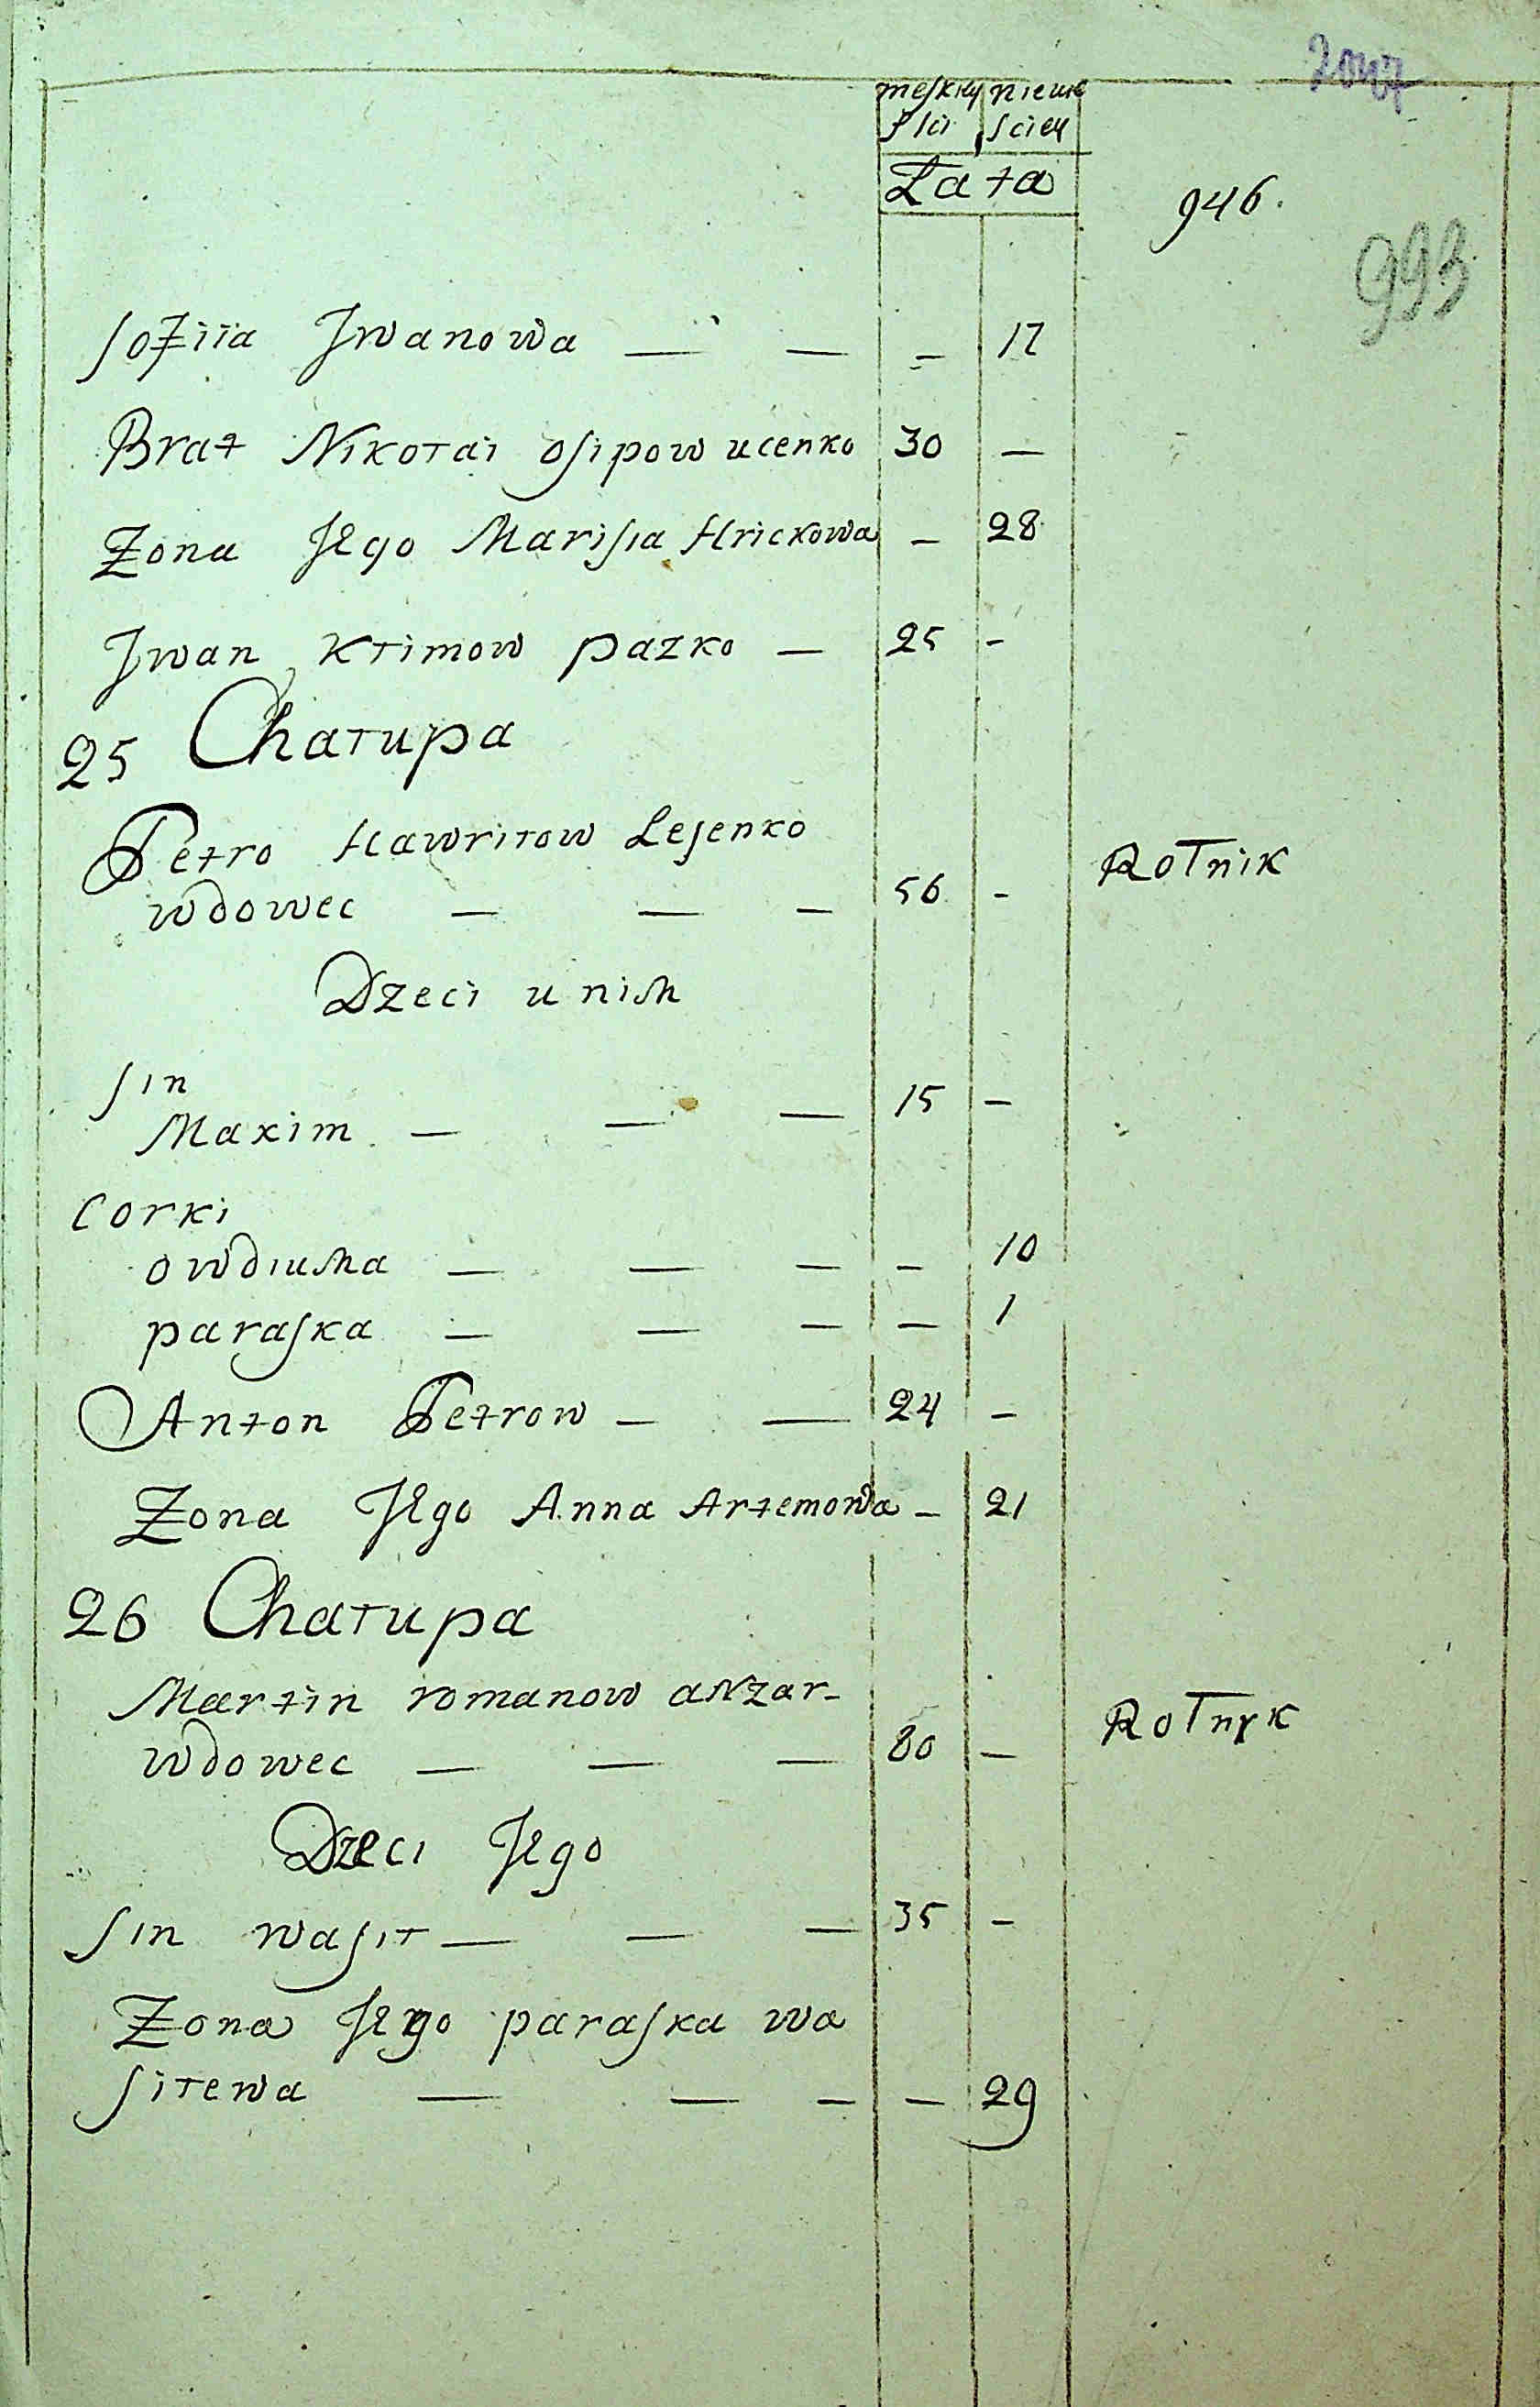 meskiy niewie
płci sciey
Łata
946.
993
Sofiia Jwanowa — — — 17
Brat Nikołai osipow ucenko 30 —
Zona Jego Marisia Hrickowa — 28
Jwan Kłimow pazko — 25 —
25 Chałupa
Petro Hawriłow Lesenko
wdowec — — — 56 — Rołnik
Dzeci u nich
Sin
Maxim — — — 15 —
Corki
owdiucha — — — — 10
paraska — — — — 1
Anton Petrow — — 24 —
Zona Jego Anna Artemowa — 21
26 Chałupa
Martin romanow
wdowec — — — 80 — Rołnyk
Dzeci Jego
Sin wasił — — — 35 —
Zona Jego paraska wa
siłewa — — — — 29